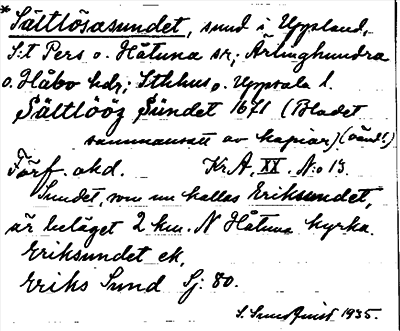 * Sältlösasundet, sund i Uppland,
S:t Pers o. Håtuna sr; Ärlinghundra
o. Håbo hdr; Sthlms o. Uppsala l.
Sältlööz Sündet 1671 (Bladet
sammansatt av kopior) (oänd!)
Förf. okd. Kr.A, XX. N:o 13.
Sundet, som nu kallas Eriksundet,
är beläget 2 km. N Håtuna kyrka.
Eriksundet ek,
Eriks Sund Sj: 80.
1935.